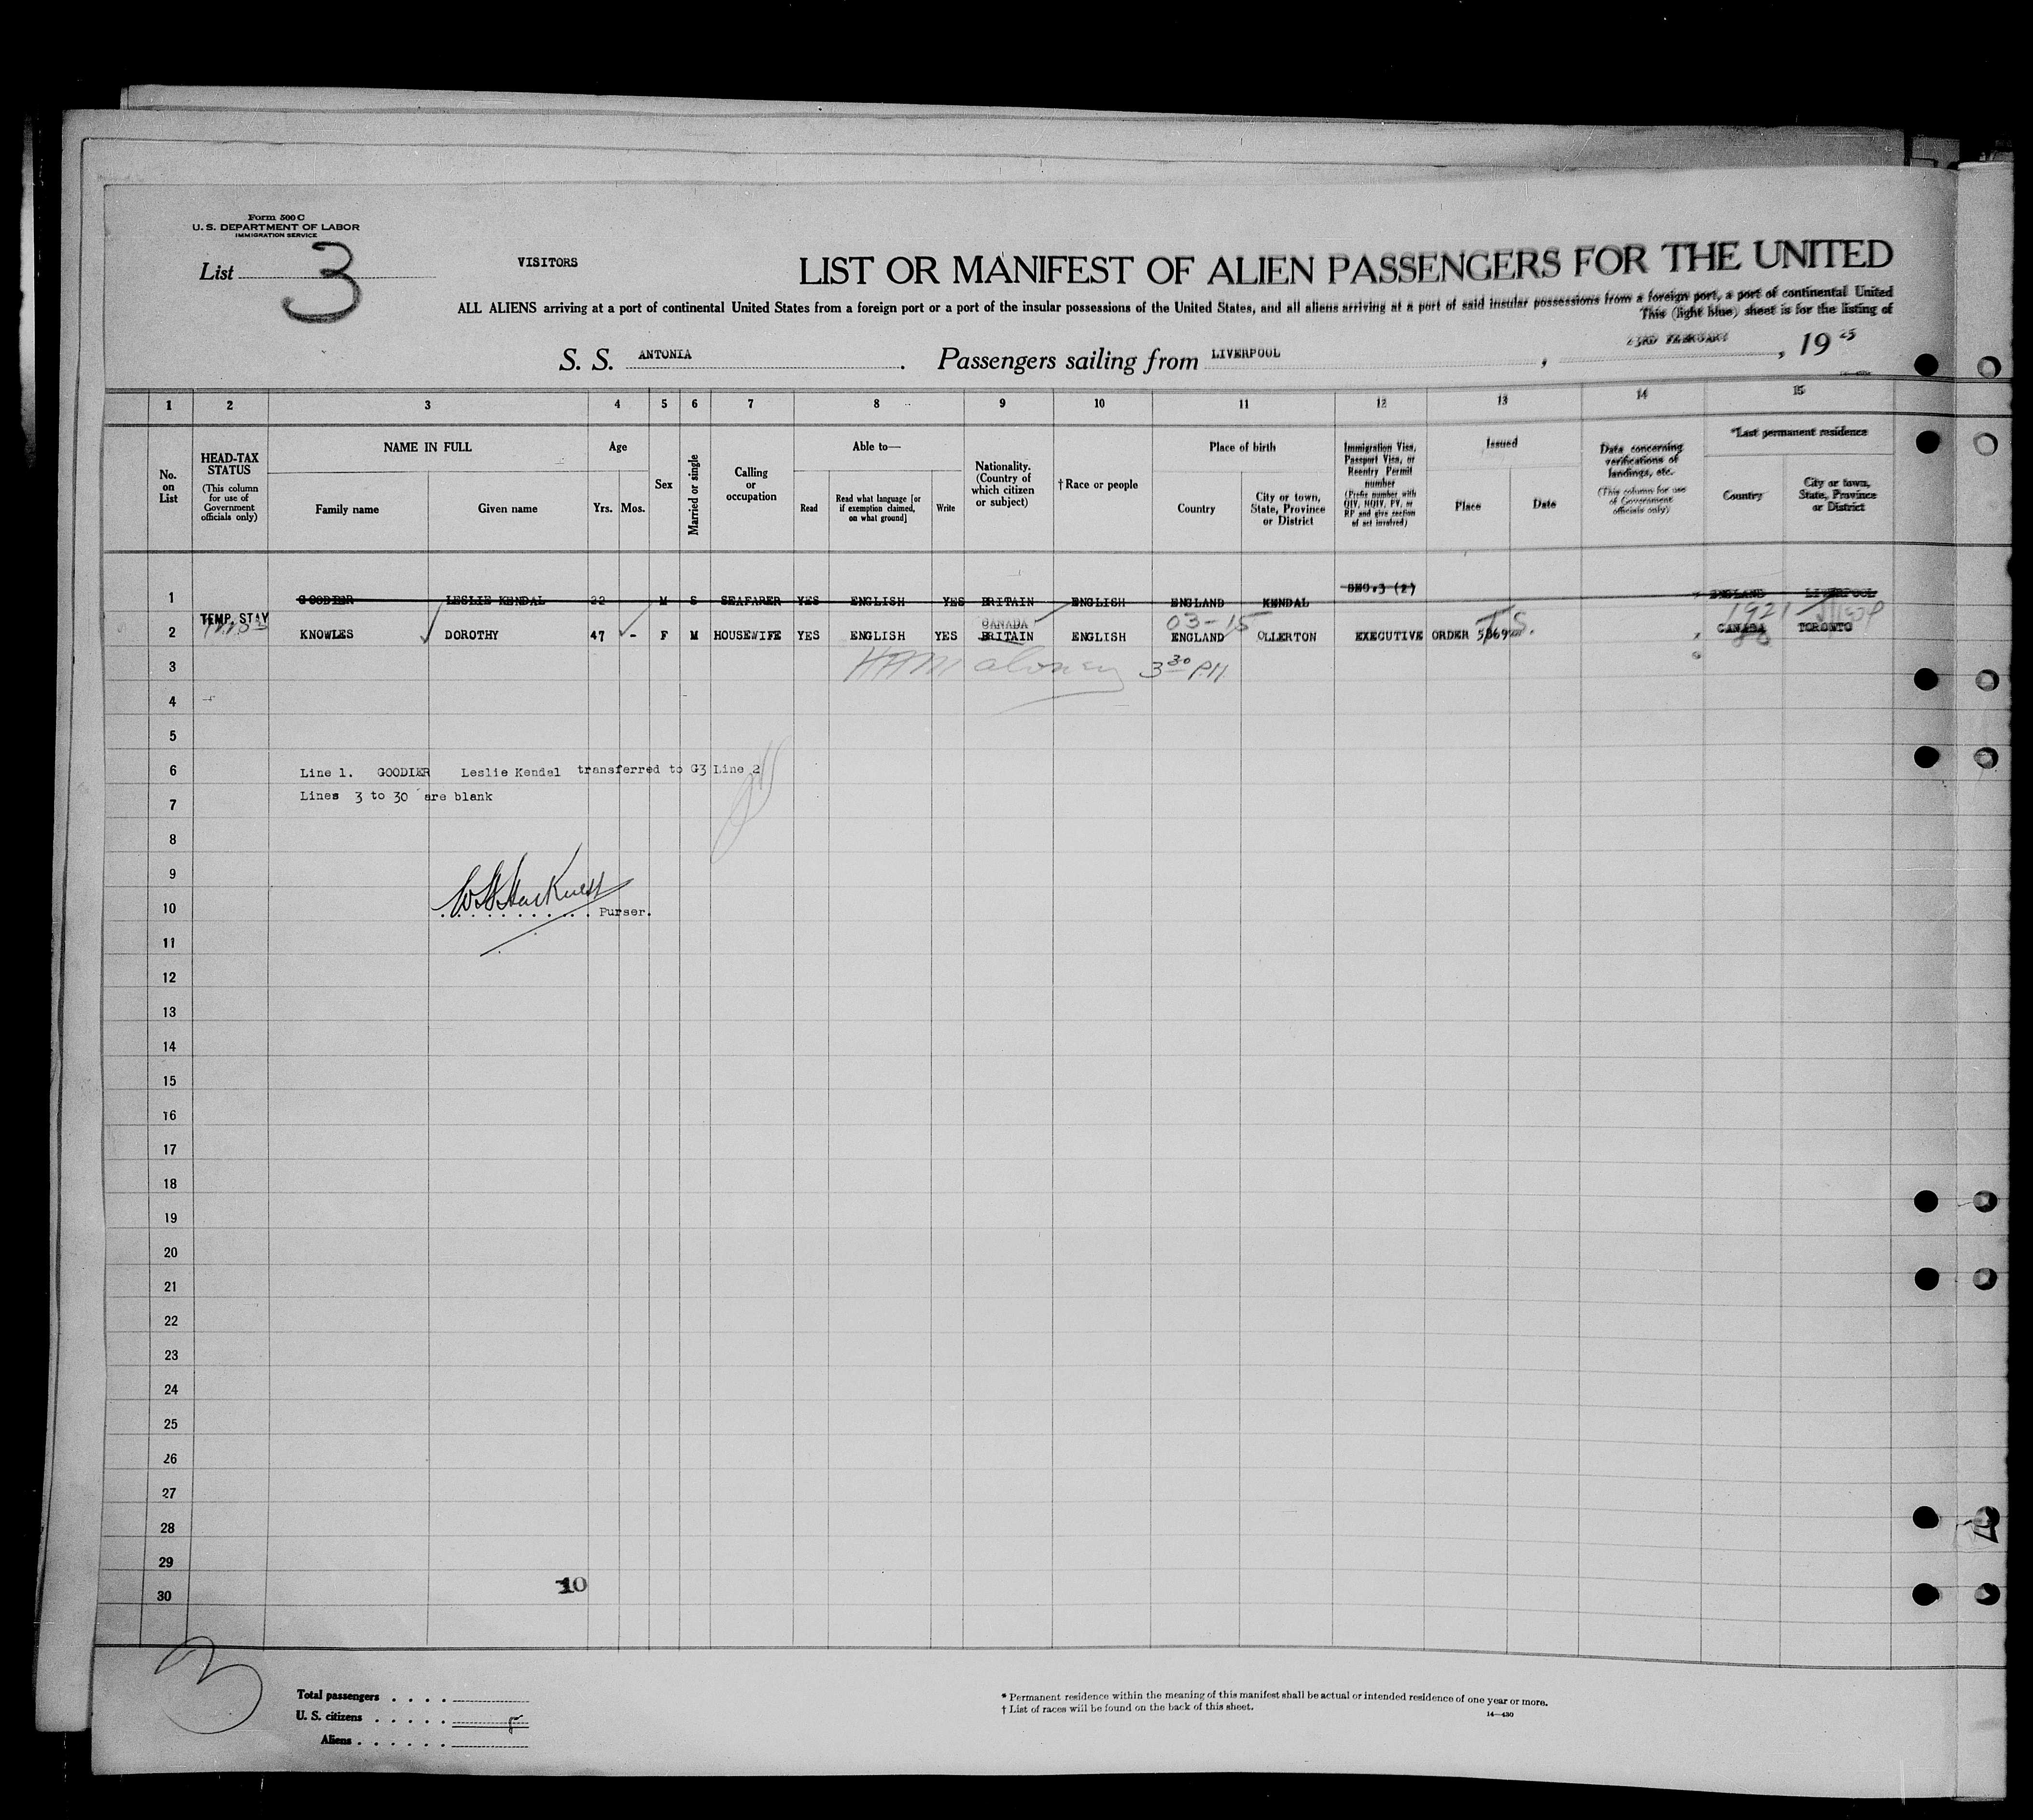 Form 500 C
U. S. DEPARTMENT OF LABOR
IMMIGRATION SERVICE
List 3
VISITORS
LIST OR MANIFEST OF ALIEN PASSENGERS FOR THE UNITED
ALL ALIENS arriving at a port of continental United States from a foreign port or a port of the insular possessions of the United States, and all aliens arriving at a port of said insular possessions from a foreign port, a port of continental United
This (light blue) sheet is for the listing of
S. S. ANTONIA. Passengers sailing from LIVERPOOL, 23RD FEBRUARY, 19
1 2 3 4 5 6 7 8 9 10 11 12 13 14 15
No. on List
HEAD-TAX STATUS
(This column for use of Government officials only)
NAME IN FULL
Family name Given name
Age
Yrs. Mos.
Sex
Married or single
Calling or occupation
Able to—
Read
Read what language [or if exemption claimed, on what ground]
Write
Nationality. (Country of which citizen or subject)
† Race or people
Place of birth
Country
City or town, State, Province or District
Immigration Visa, Passport Visa, or Reentry Permit number
(Prefix number with QIV, NQIV, PV, or RP and give section of act involved)
Issued
Place Date
Data concerning verifications of landings, etc.
(This column for use of Government officials only)
*Last permanent residence
Country
City or town, State, Province or District
SEC.3 (2)
1 GOODIER LESLIE KENDAL 22 M S SEAFARER YES ENGLISH YES BRITAIN ENGLISH ENGLAND KENDAL ENGLAND LIVERPOOL
TEMP. STAY CANADA 03-15 T.S. 1921
2 KNOWLES DOROTHY 47 - F M HOUSEWIFE YES ENGLISH YES BRITAIN ENGLISH ENGLAND OLLERTON EXECUTIVE ORDER 5869 CANADA TORONTO
3 3 30 P.M.
4
5
6 Line 1. GOODIER Leslie Kendal transferred to G3 Line 2
7 Lines 3 to 30 are blank
8
9
10 Purser.
11
12
13
14
15
16
17
18
19
20
21
22
23
24
25
26
27
28
29
10
30
3
Total passengers
U. S. citizens
Aliens
* Permanent residence within the meaning of this manifest shall be actual or intended residence of one year or more.
† List of races will be found on the back of this sheet.
14—430